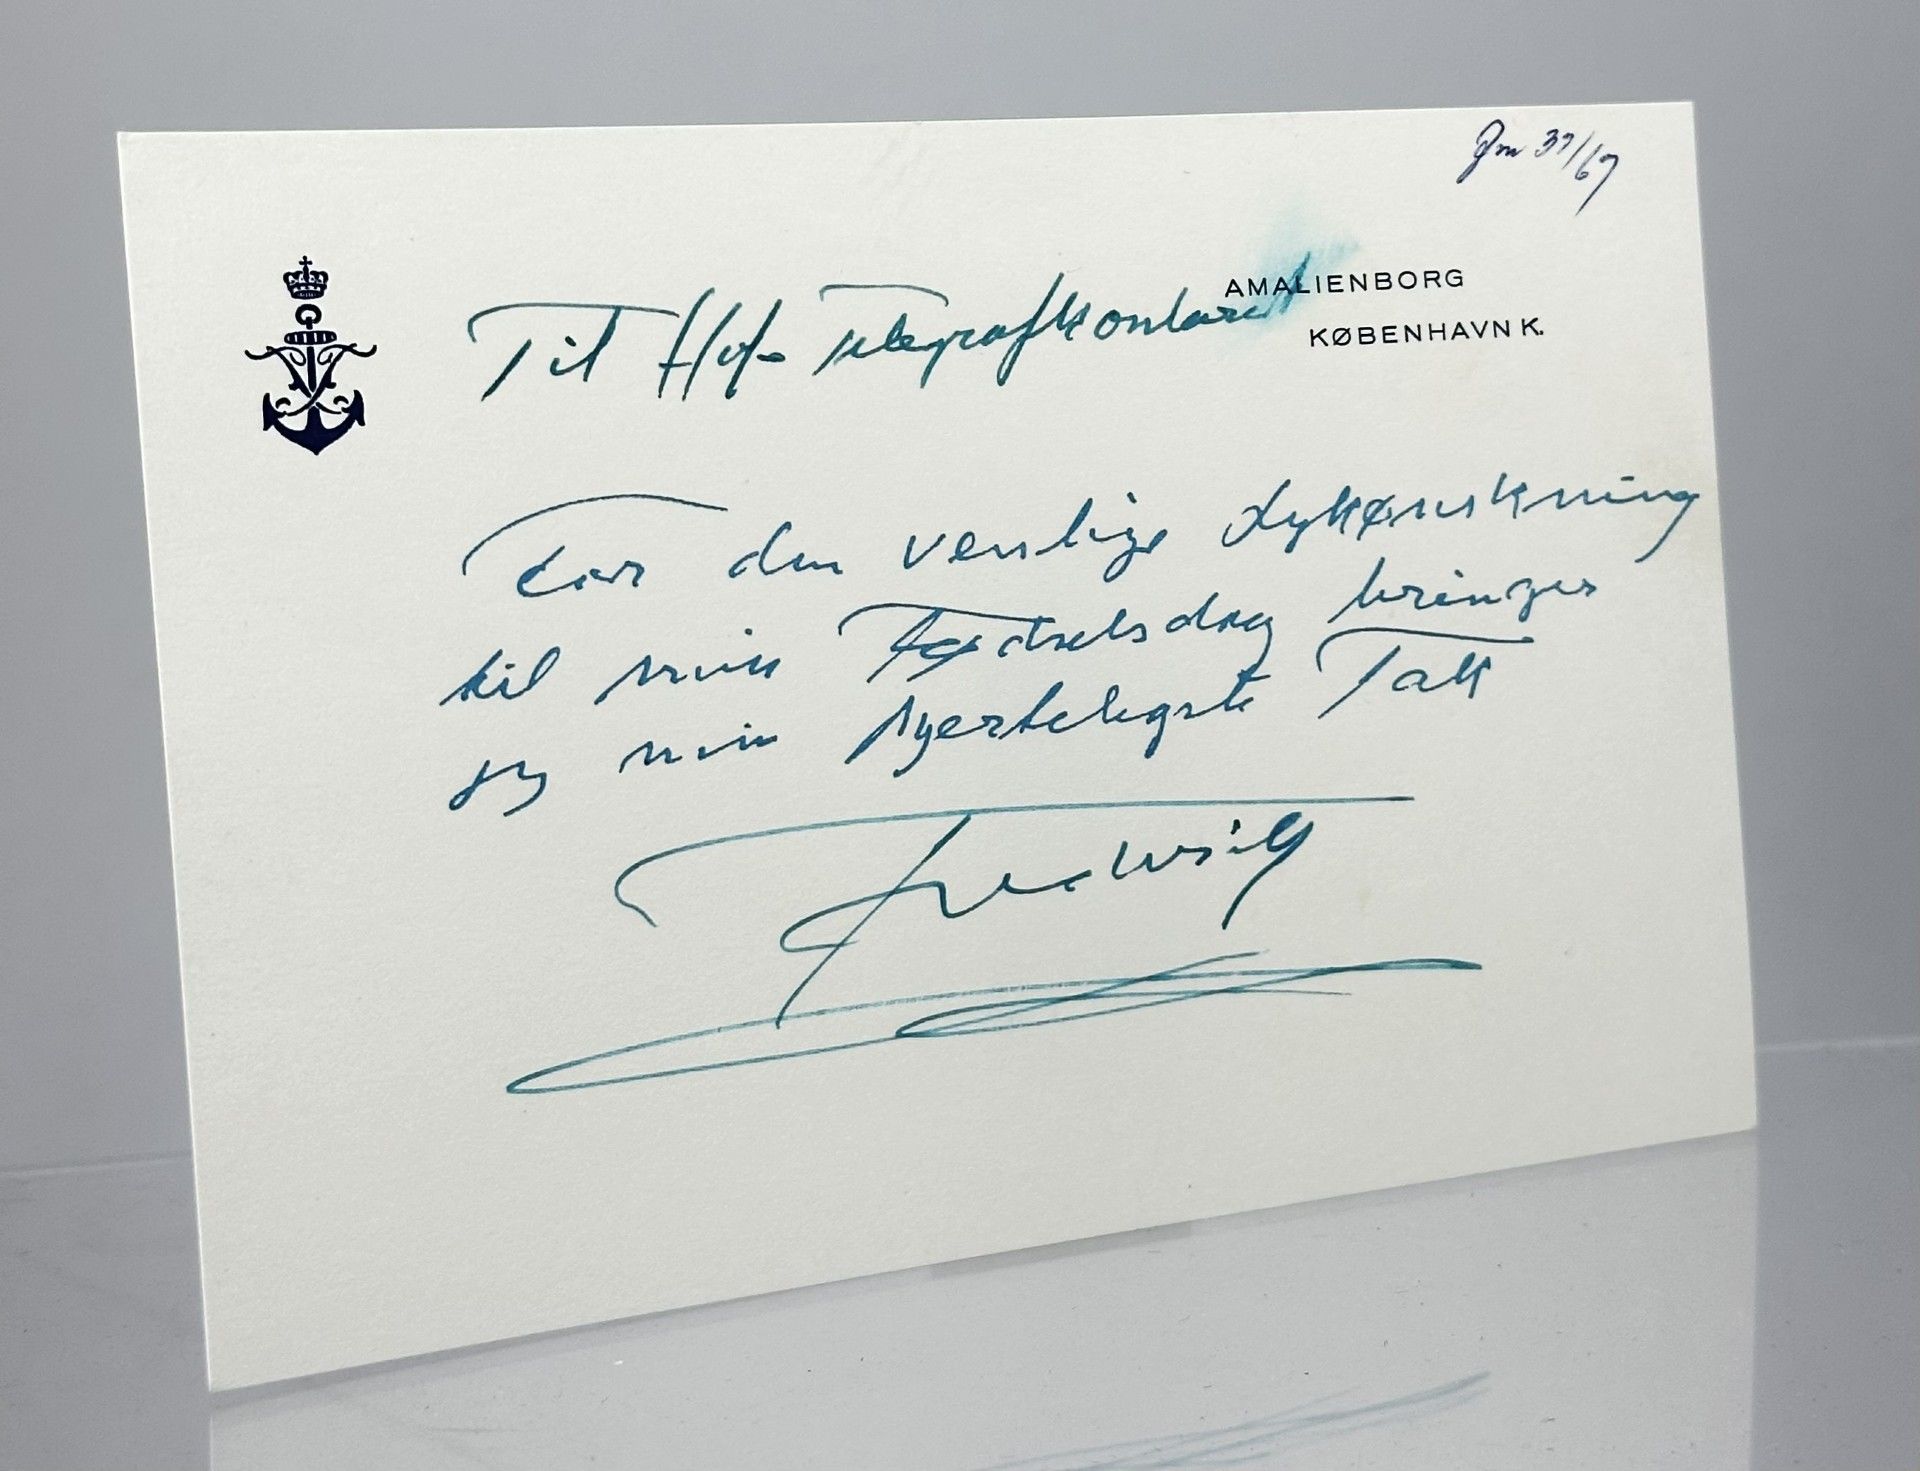 37/67
AMALIENBORG
KØBENHAVN K.
Til Hof-Telegrafkontoret
For den venlige Lykønskning
til min Fødselsdag bringer
jeg min hjerteligste Tak
Frederik